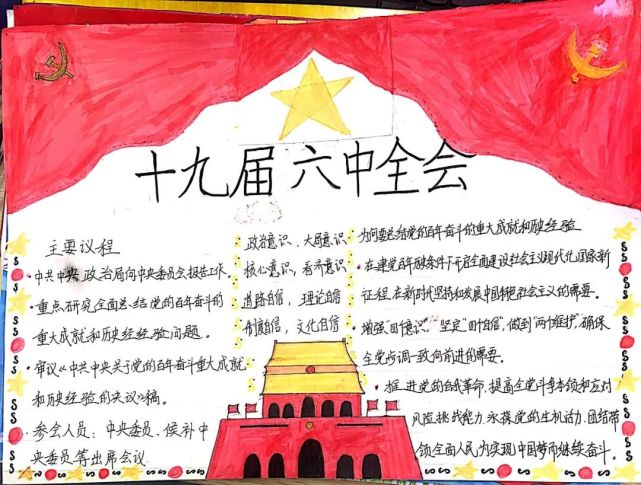 十九届六中全会
主要议程
·中共中央政治局向中央委员会报告工作。
·重点研究全面总结党的百年奋斗的
重大成就和历史经验问题。
·审议《中共中央关于党的百年奋斗重大成就
和历史经验的决议》稿。
·参会人员：中央委员、候补中
央委员等出席会议.
政治意识、大局意识
核心意识、看齐意识
道路自信，理论自信
制度自信，文化自信
为何要总结党的百年奋斗的重大成就和历史经验
·在建党百年历史条件下开启全面建设社会主义现代化国家新
征程，在新时代坚持和发展中国特色社会主义的需要。
·增强"四个意识"坚定"四个自信"，做到"两个维护"，确保
全党步调一致向前进的需要。
·推进党的自我革命，提高全党斗争本领和应对
风险挑战能力，永葆党的生机活力，团结带
领全国人民为实现中国梦而继续奋斗。